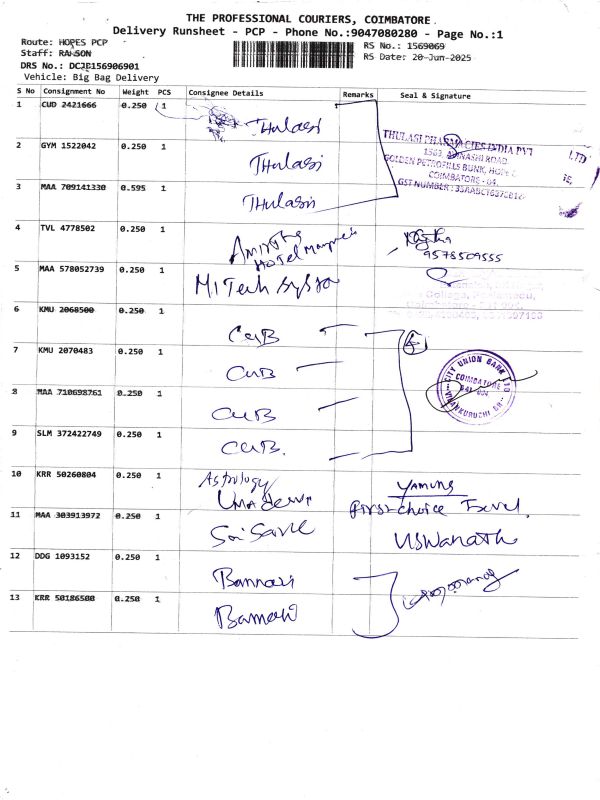 THE PROFESSIONAL COURIERS, COIMBATORE
Delivery Runsheet - PCP - Phone No.:9047080280 - Page No.:1
Route: HOPES PCP
RS No.: 1569069
Staff: RAWSON
RS Date: 20-Jun-2025
DRS No.: DCJE156906901
Vehicle: Big Bag Delivery
S No Consignment No Weight PCS Consignee Details Remarks Seal & Signature
1 CUD 2421666 0.250 1 Thulasi
THULASI PHARMACIES INDIA PVT LTD
2 GYM 1522042 0.250 1 Thulasi
1563, AVINASHI ROAD
GOLDEN PETROFILLS BUNK, HOPE
COIMBATORE - 04.
GST NUMBER :
3 MAA 709141330 0.595 1 Thulasi
4 TVL 4778502 0.250 1
Hotel
9578509555
5 MAA 578052739 0.250 1 MI Tech
6 KMU 2068500 0.250 1 CUB
7 KMU 2070483 0.250 1 CUB
CITY UNION BANK LTD
COIMBATORE
8 MAA 710698761 0.250 1 CUB
9 SLM 372422749 0.250 1 CUB.
10 KRR 50260804 0.250 1 Astrology
Yamuna
Umadevi
First choice Travel.
11 MAA 303913972 0.250 1
12 DDG 1093152 0.250 1 Bannari
13 KRR 50186500 0.250 1 Bannari